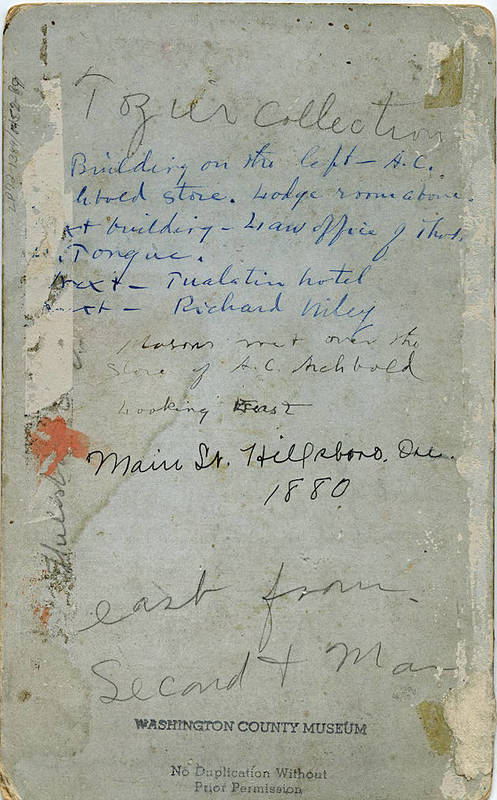 Tozier Collection
Building on the left - A.C.
hbold store. Lodge room above.
xt building - Law office of Thos.
. Tongue.
Next - Tualatin hotel
xt - Richard Wiley
Masons met over the
Store of A.C. Archbold
Looking East
Main St. Hillsboro, Ore.
1880
east from
Second & Ma
WASHINGTON COUNTY MUSEUM
No Duplication Without
Prior Permission